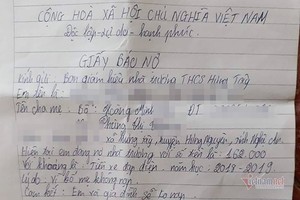 CỘNG HOÀ XÃ HỘI CHỦ NGHĨA VIỆT NAM
Độc lập - tự do - hạnh phúc.
GIẤY BÁO NỢ
Kính gửi: Ban giám hiệu nhà trường THCS Hưng Tây
Em tên là:
Tên cha mẹ. Bố: Hoàng Minh ĐT
xã Hưng Tây, huyện Hưng Nguyên, tỉnh Nghệ An.
Hiện tại em đang nợ nhà trường với số tiền là: 162.000
Về khoản là: Tiền xe đạp điện. năm học: 2018 - 2019.
Lý do: Vì Bố mẹ không nạp.
Cam kết: Em xin gia đình sẽ nạp.